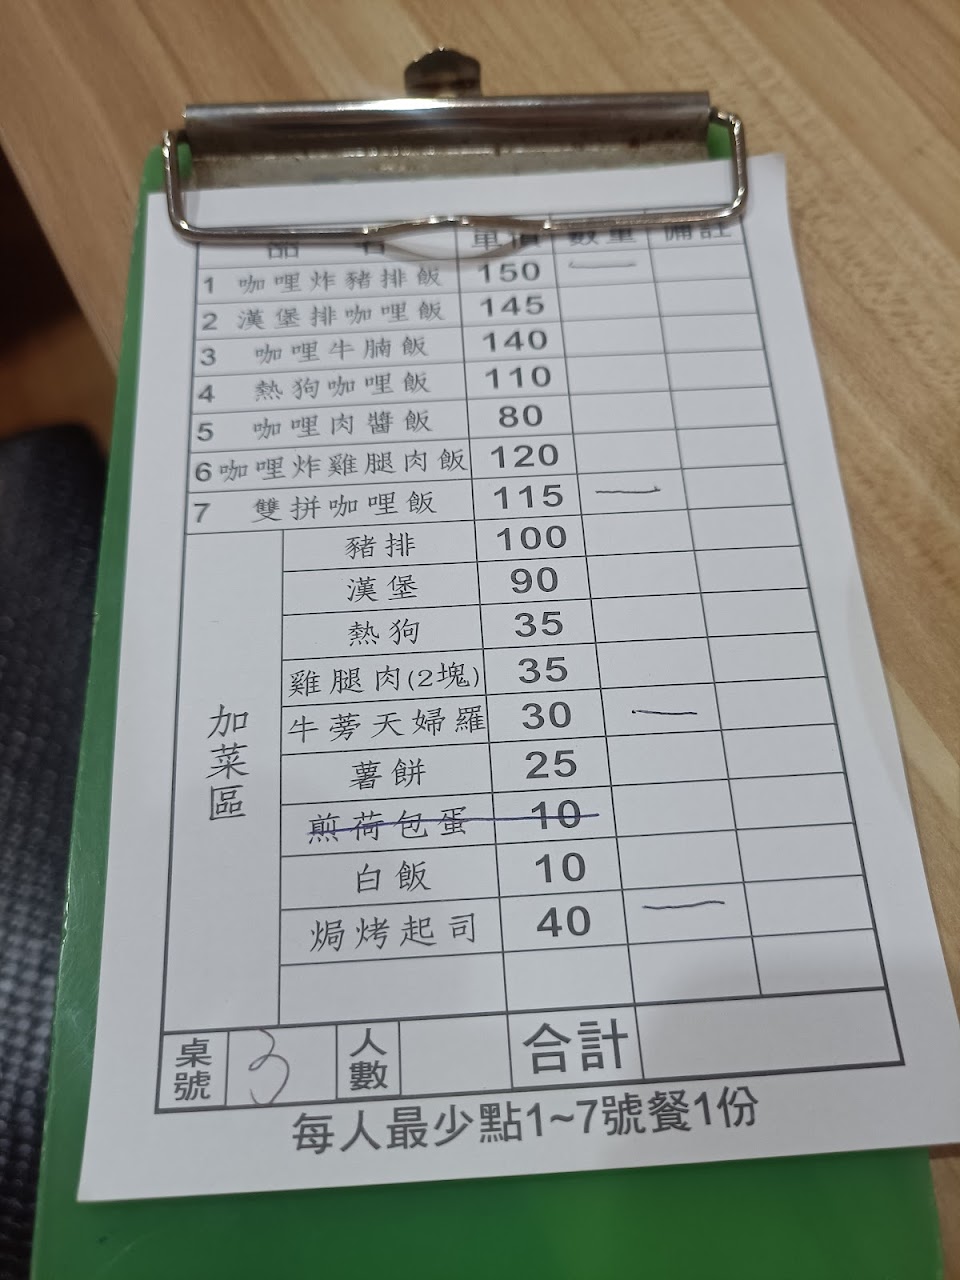 品名 單價 數量 備註
1 咖哩炸豬排飯 150 一
2 漢堡排咖哩飯 145
3 咖哩牛腩飯 140
4 熱狗咖哩飯 110
5 咖哩肉醬飯 80
6 咖哩炸雞腿肉飯 120
7 雙拼咖哩飯 115 一
加菜區
豬排 100
漢堡 90
熱狗 35
雞腿肉(2塊) 35
牛蒡天婦羅 30 一
薯餅 25
煎荷包蛋 10
白飯 10
焗烤起司 40 一
桌號 3 人數 合計
每人最少點1~7號餐1份